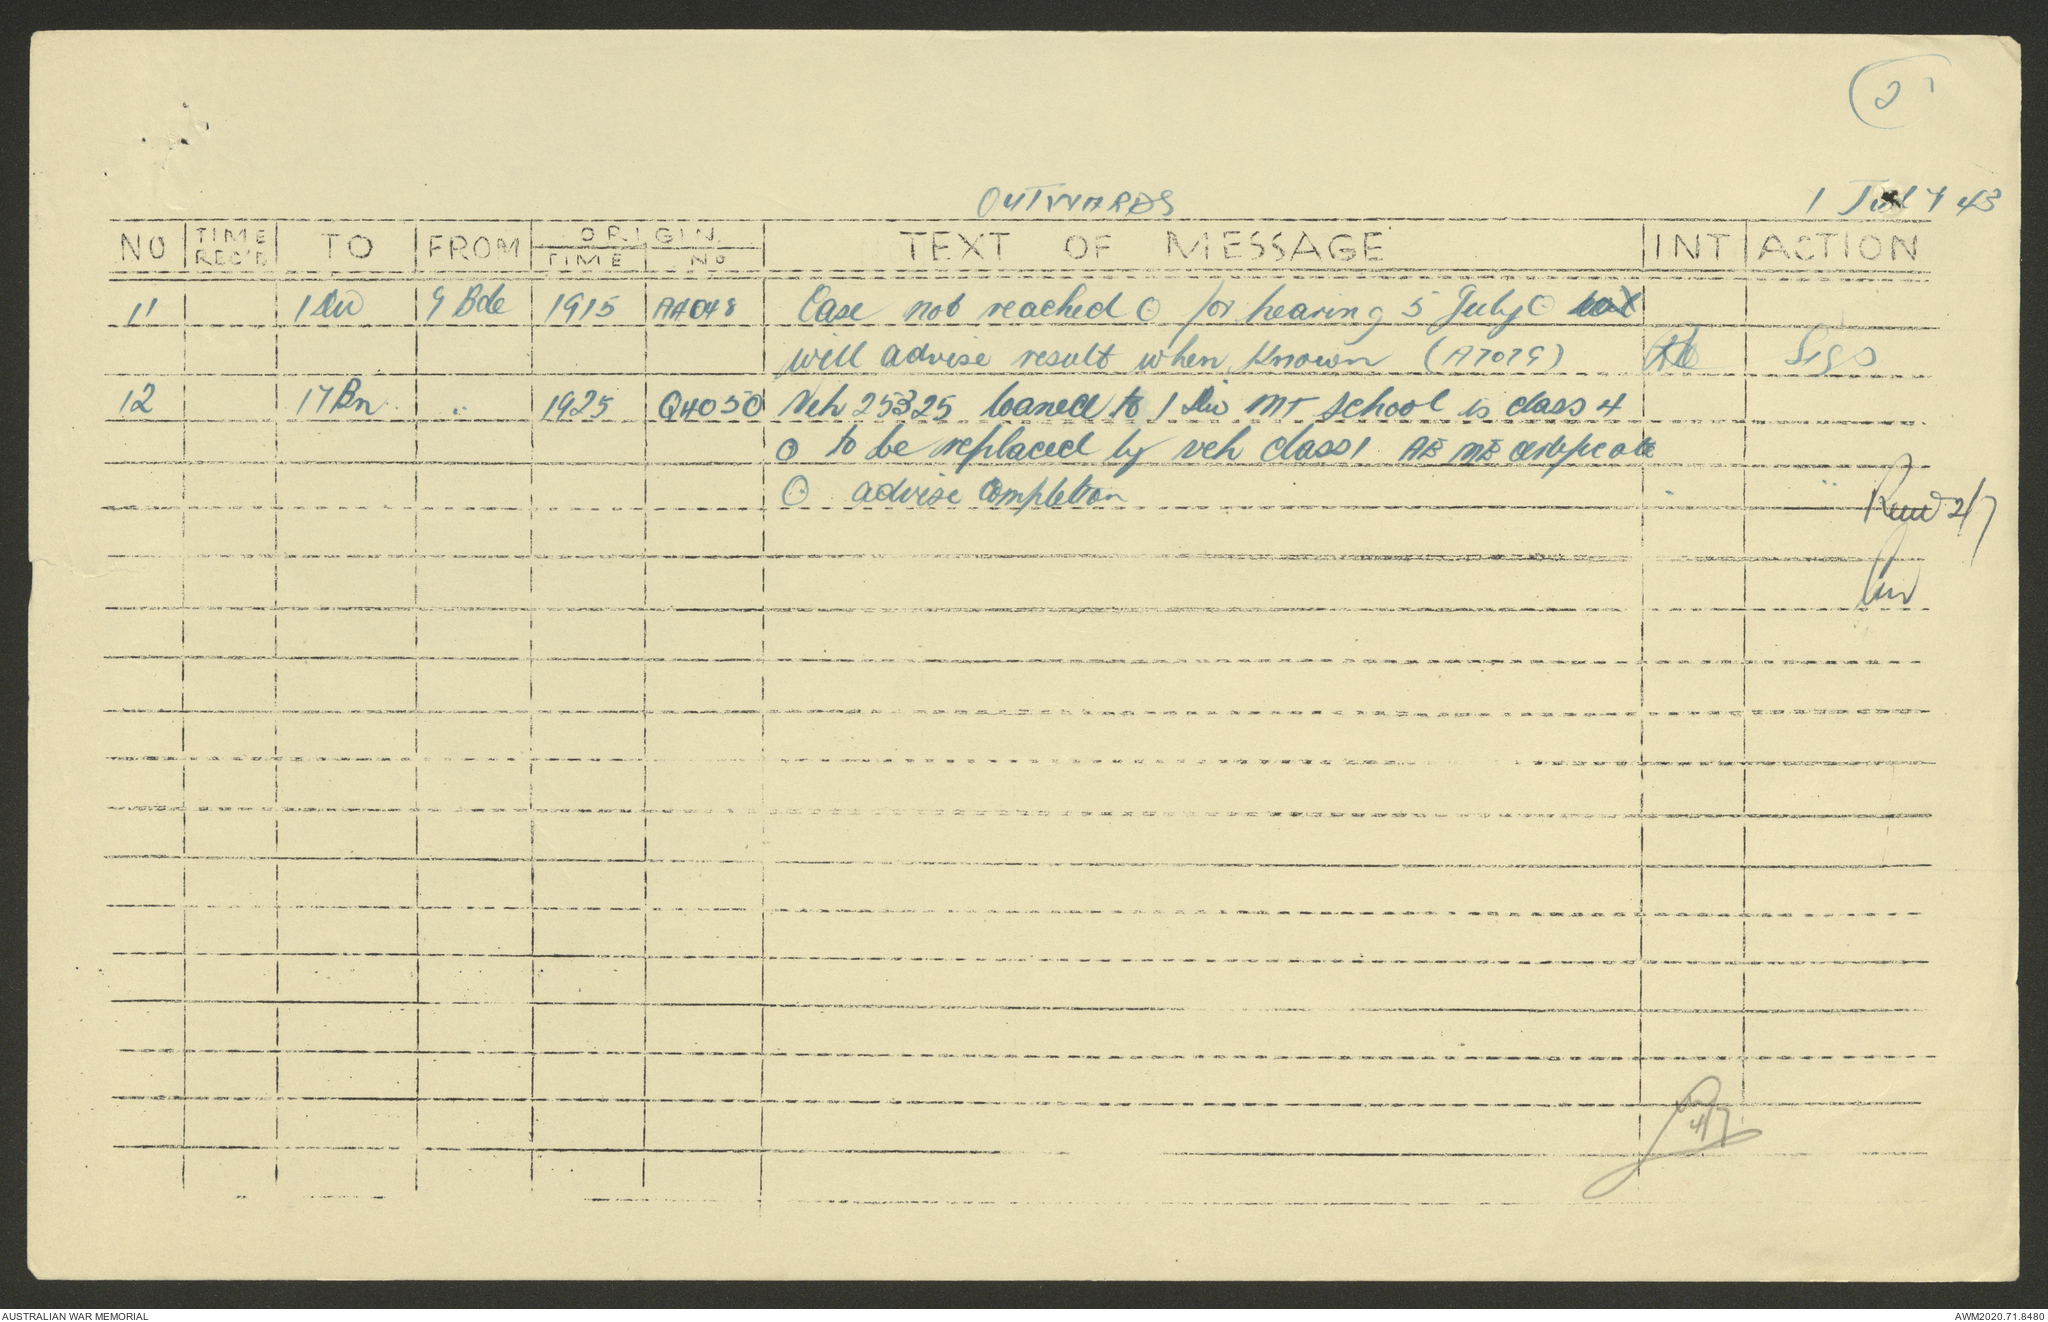 2
OUTWARDS
1 July 43
NO TIME REC'D TO FROM ORIGIN TIME NO TEXT OF MESSAGE INT ACTION
11 1 Div 9 Bde 1915 AA048 Case not reached ⊙ for hearing 5 July ⊙
will advise result when known (A7079) Sigs
12 17 Bn " 1925 Q4050 Veh 25325 loaned to 1 Div MT school is class 4
⊙ to be replaced by veh class 1 AEME certificate
⊙ advise completion "
2/7
4/7
AUSTRALIAN WAR MEMORIAL
AWM2020.71.8480